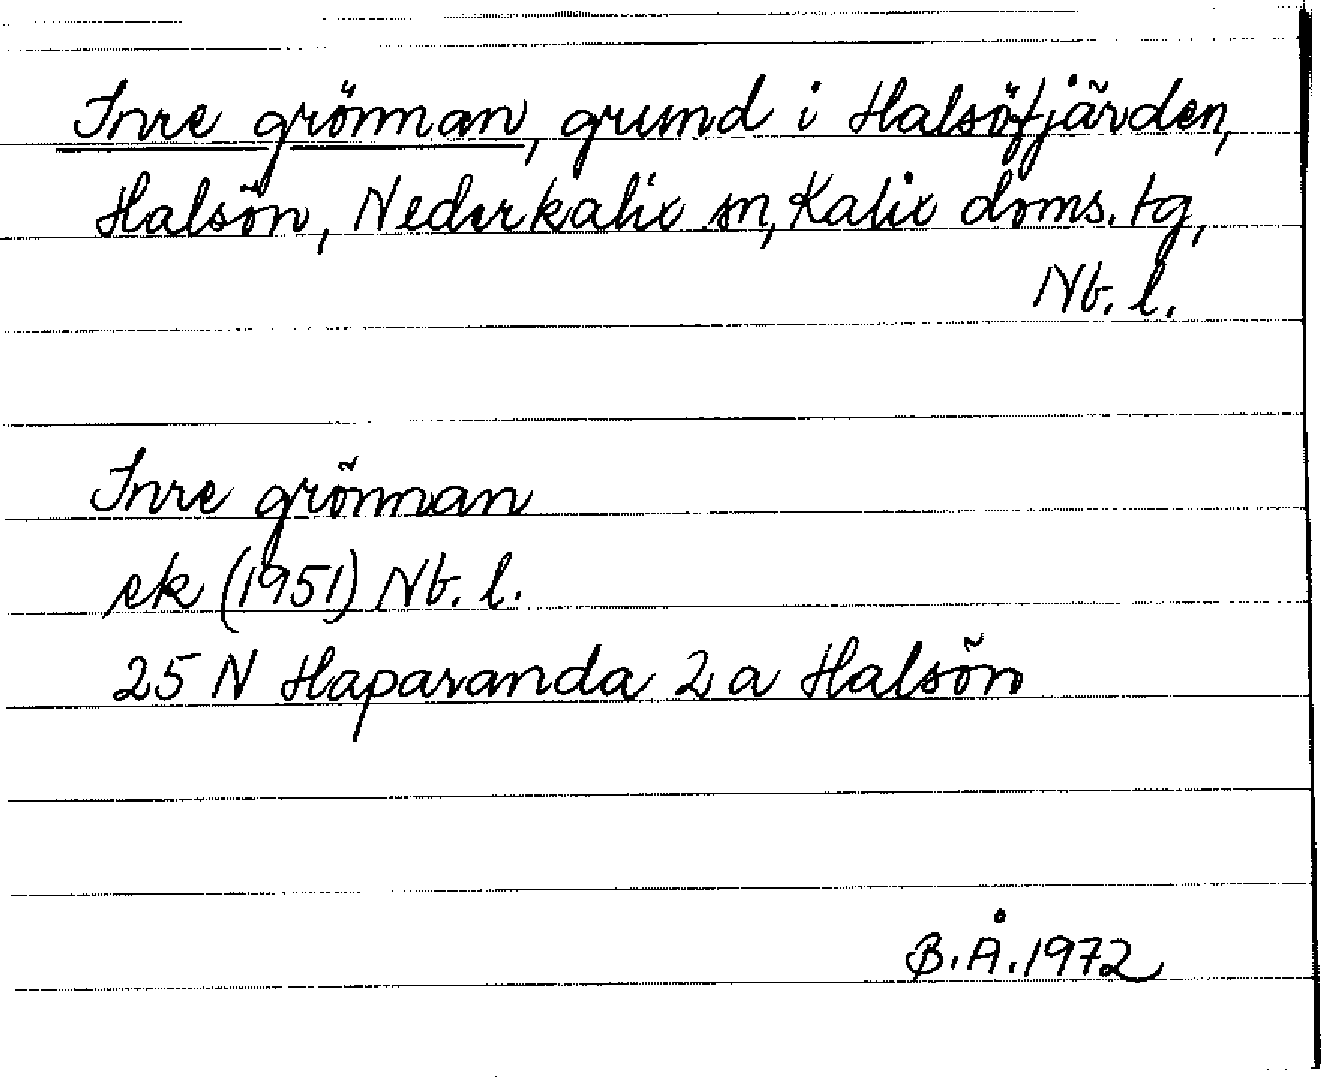 Inre grönnan, grund i Halsöfjärden,
Halsön, Nederkalix sn, Kalix doms. tg,
Nb. l.
Inre grönnan
ek (1951) Nb. l.
25 N Haparanda 2 a Halsön
B.Å.1972